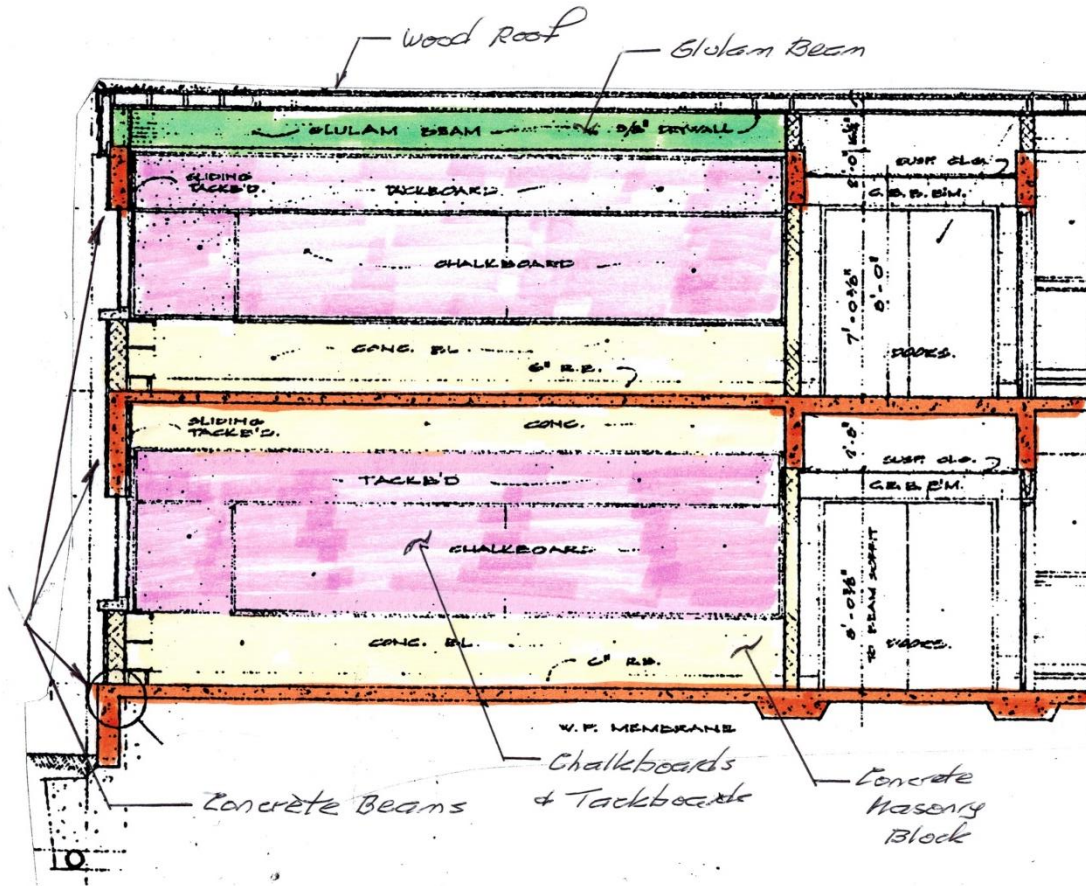 Wood Roof
Glulam Beam
GLULAM BEAM
5/8" DRYWALL
SLIDING
TACKB'D.
TACKBOARD
SUSP. CLG.
CHALKBOARD
7'-0⅜"
8'-0"
DOORS.
CONC. BL.
6" R.B.
SLIDING
TACKB'D.
CONC.
SUSP. CLG.
TACKB'D
CHALKBOARD
8'-0⅜"
TO BEAM SOFFIT
DOORS.
CONC. BL.
6" R.B.
W.P. MEMBRANE
Chalkboards
& Tackboards
Concrete
Masonry
Block
Concrete Beams